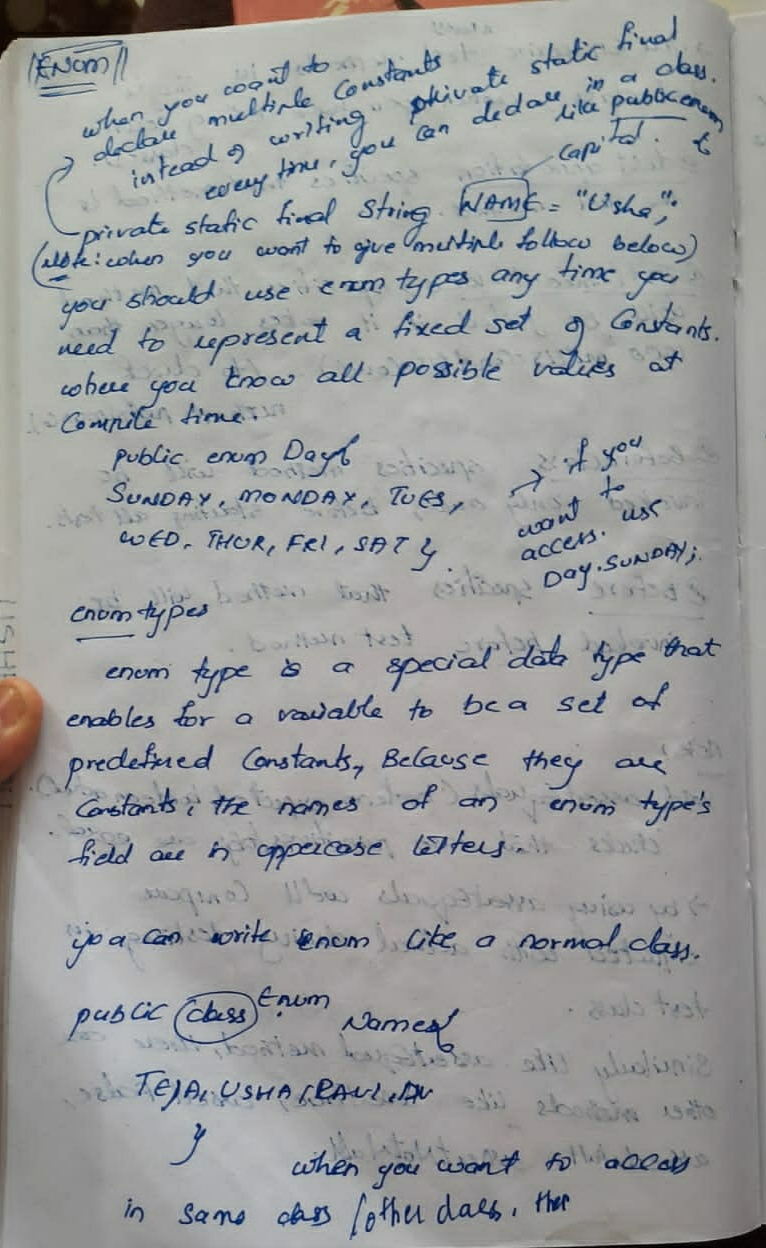 ||Enom||
when you want to
declare multiple Constants
instead of writing "private static final
every time, you can declare in a class.
like public enum {
capital.
private static final String NAME = "Usha";
(Note: when you want to give multiple follow below)
you should use enum types any time you
need to represent a fixed set of Constants.
where you know all possible values at
Compile time.
public enum Day{
SUNDAY, MONDAY, TUES,
WED, THUR, FRI, SAT }
→ if you
want to
access. use
Day.SUNDAY;
enum types
enum type is a special data type that
enables for a variable to be a set of
predefined Constants, Because they are
Constants, the names of an enum type's
field are in uppercase letters.
you can write enum like a normal class.
public class Enum Names{
TEJA, USHA, RAVI,
}
when you want to access
in same class /other class, then